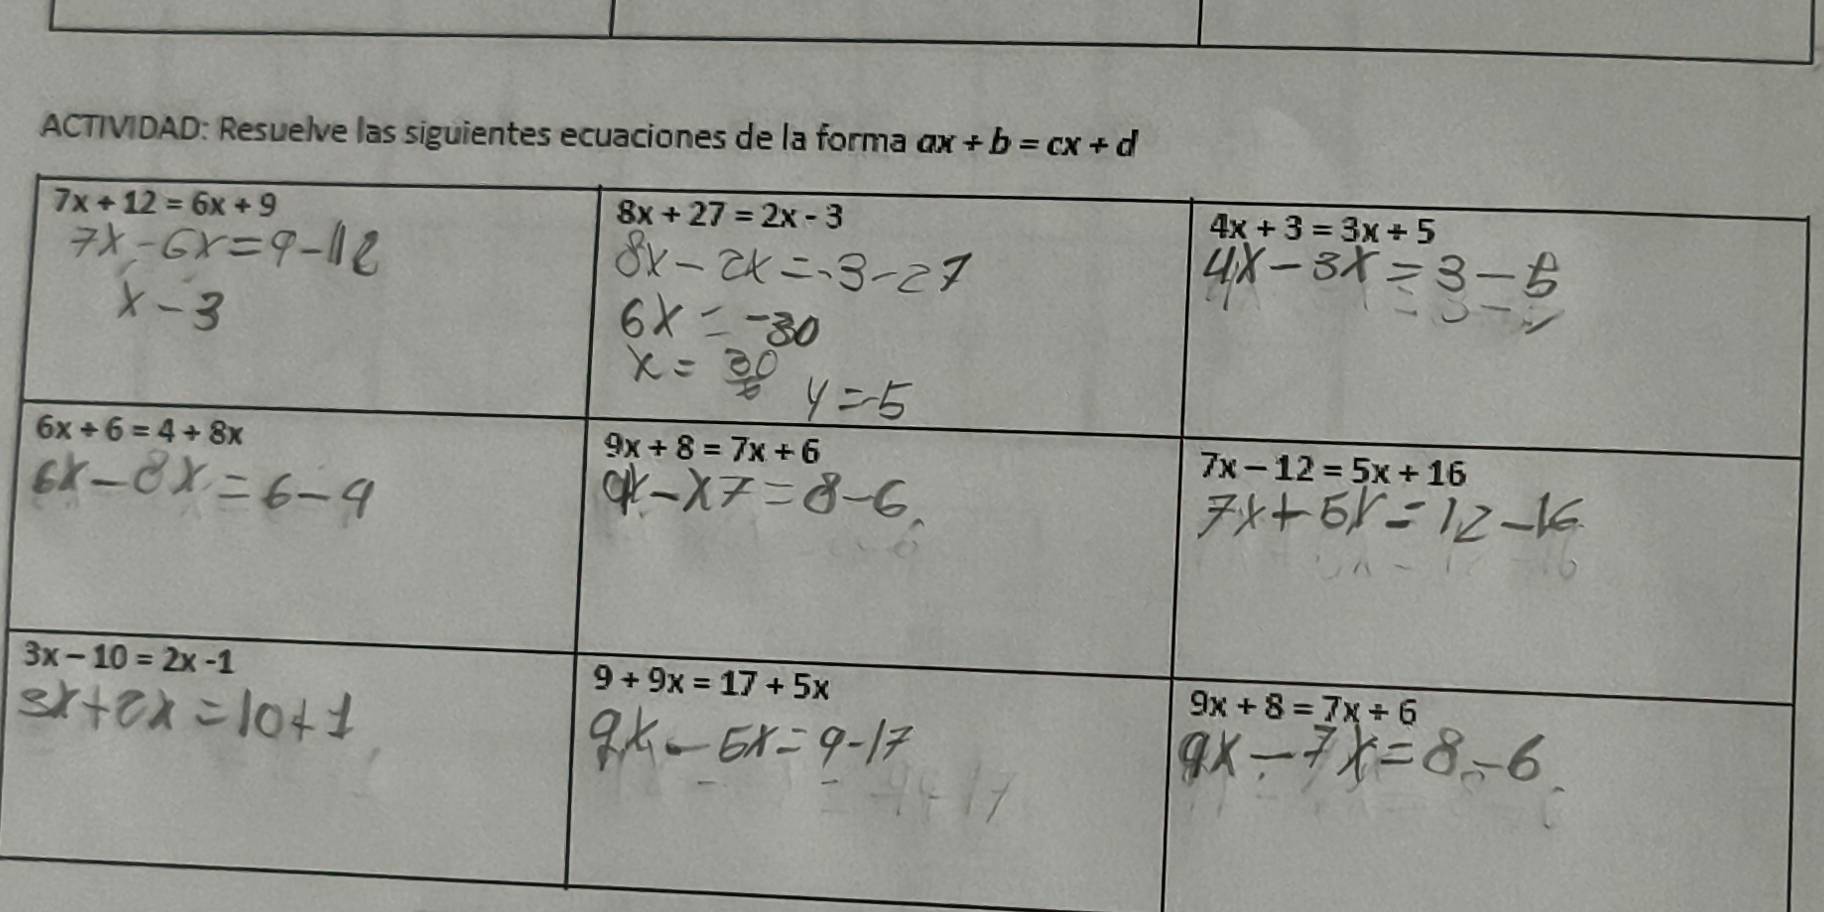 ACTIVIDAD: Resuelve las siguientes ecuaciones de la forma ax + b = cx + d
7x + 12 = 6x + 9
7x - 6x = 9 - 12
x - 3
8x + 27 = 2x - 3
8x - 2x = -3 - 27
6x = -30
x = 30/6 y = -5
4x + 3 = 3x + 5
4x - 3x = 3 - 5
6x + 6 = 4 + 8x
6x - 8x = 6 - 4
9x + 8 = 7x + 6
9x - x7 = 8 - 6
7x – 12 = 5x + 16
7x + 5x = 12 - 16
3x – 10 = 2x -1
3x + 2x = 10 + 1
9 + 9x = 17 + 5x
9x - 5x = 9 - 17
9x + 8 = 7x + 6
9x - 7x = 8 - 6